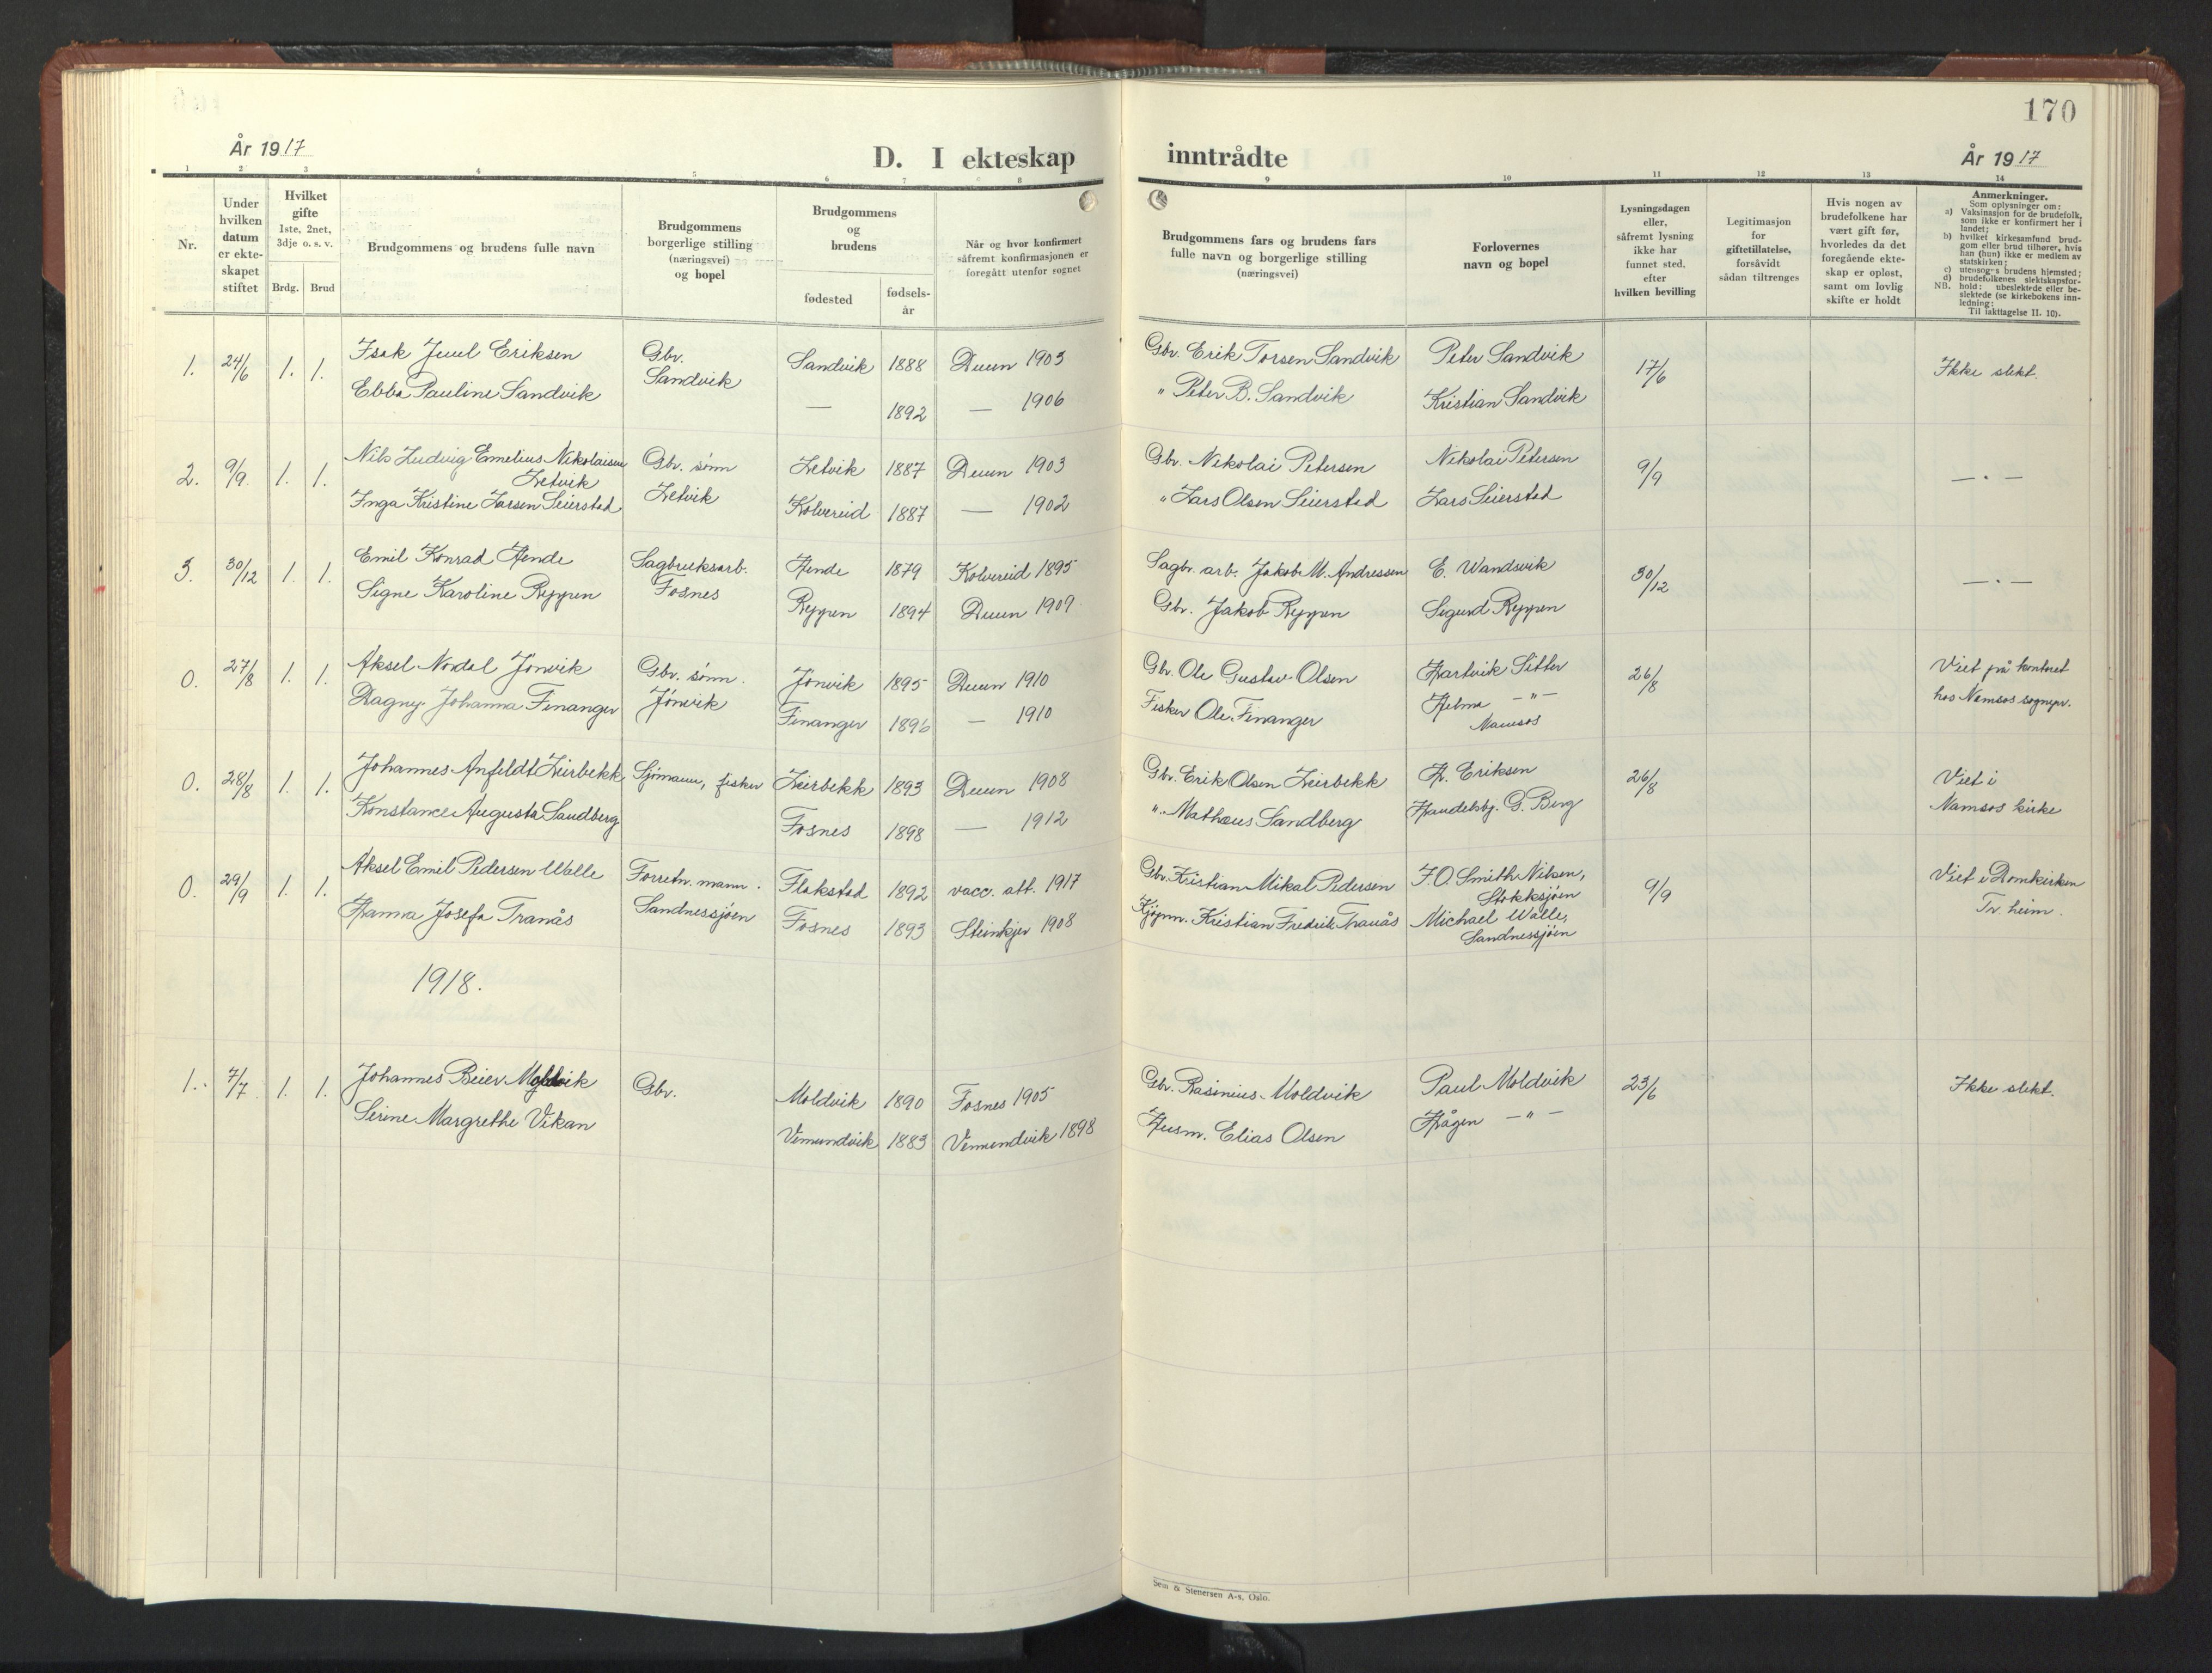 170
År 1917
D. I ekteskap inntrådte
År 1917
1 2 3 4 5 6 7 8 9 10 11 12 13 14
Nr.
Under hvilken datum er ekte-skapet stiftet
Hvilket gifte 1ste, 2net, 3dje o. s. v.
Brdg. Brud
Brudgommens og brudens fulle navn
Brudgommens borgerlige stilling (næringsvei) og bopel
Brudgommens og brudens
fødested
fødsels-år
Når og hvor konfirmert såfremt konfirmasjonen er foregått utenfor sognet
Brudgommens fars og brudens fars fulle navn og borgerlige stilling (næringsvei)
Forlovernes navn og bopel
Lysningsdagen eller, såfremt lysning ikke har funnet sted, efter hvilken bevilling
Legitimasjon for giftetillatelse, forsåvidt sådan tiltrenges
Hvis nogen av brudefolkene har vært gift før, hvorledes da det foregående ekte-skap er opløst, samt om lovlig skifte er holdt
Anmerkninger.
Som oplysninger om:
a) Vaksinasjon for de brudefolk, som ikke er konfirmert her i landet;
b) hvilket kirkesamfund brud-gom eller brud tilhører, hvis han (hun) ikke er medlem av statskirken;
c) utensogns brudens hjemsted;
d) brudefolkenes slektskapsfor-hold: ubeslektede eller be-slektede (se kirkebokens inn-ledning;
NB. Til iakttagelse II. 10).
1. 24/6 1. 1. Isak Juul Eriksen Gbr. Sandvik Sandvik 1888 Duun 1903 Gbr. Erik Torsen Sandvik Peter Sandvik 17/6 Ikke slekt.
Ebba Pauline Sandvik — 1892 — 1906 " Peter B. Sandvik Kristian Sandvik
2. 9/9 1. 1. Nils Ludvig Emelius Nikolaisen Letvik Gbr. sønn Letvik Letvik 1887 Duun 1903 Gbr. Nikolai Petersen Nikolai Petersen 9/9 — " —
Inga Kristine Larsen Seierstad Kolvereid 1887 — 1902 " Lars Olsen Seierstad Lars Seierstad
3. 30/12 1. 1. Emil Konrad Hende Sagbruksarb. Fosnes Hende 1879 Kolvereid 1895 Sagbr. arb. Jakob M. Andressen E. Wandsvik 30/12 — " —
Signe Karoline Reppen Reppen 1894 Duun 1909 Gbr. Jakob Reppen Sigurd Reppen
0. 27/8 1. 1. Aksel Nordal Jønvik Gbr. sønn. Jønvik Jønvik 1895 Duun 1910 Gbr. Ole Gustav Olsen Hartvik Sitter 26/8 Viet på kontoret
Dagny Johanna Finanger Finanger 1896 — 1910 Fisker Ole Finanger Helma — " — Namsos hos Namsos sognepr.
0. 28/8 1. 1. Johannes Anfeldt Leirbekk Sjømann, fisker Leirbekk 1893 Duun 1908 Gbr. Erik Olsen Leirbekk H. Eriksen 26/8 Viet i
Konstance Augusta Sandberg Fosnes 1898 — 1912 " Mathæus Sandberg Handelsbj. G. Berg Namsos kirke
0. 29/9 1. 1. Aksel Emil Pedersen Walle Forretn. mann. Sandnessjøen Flakstad 1892 vacc. att. 1917 Gbr. Kristian Mikal Pedersen F.O. Smith Nilsen, Stokksjøen 9/9 Viet i Domkirken
Hanna Josefa Tranås Fosnes 1893 Steinkjer 1908 Kjøpm. Kristian Fredrik Tranås Michael Walle, Sandnessjøen Tr. heim.
1918.
1. 7/7 1. 1. Johannes Beier Moldvik Gbr. Moldvik 1890 Fosnes 1905 Gbr. Rasinius Moldvik Paul Moldvik 23/6 Ikke slekt.
Serine Margrethe Vikan Vemundvik 1883 Vemundvik 1898 Husm. Elias Olsen Hågen — " —
Sem & Stenersen A-s, Oslo.